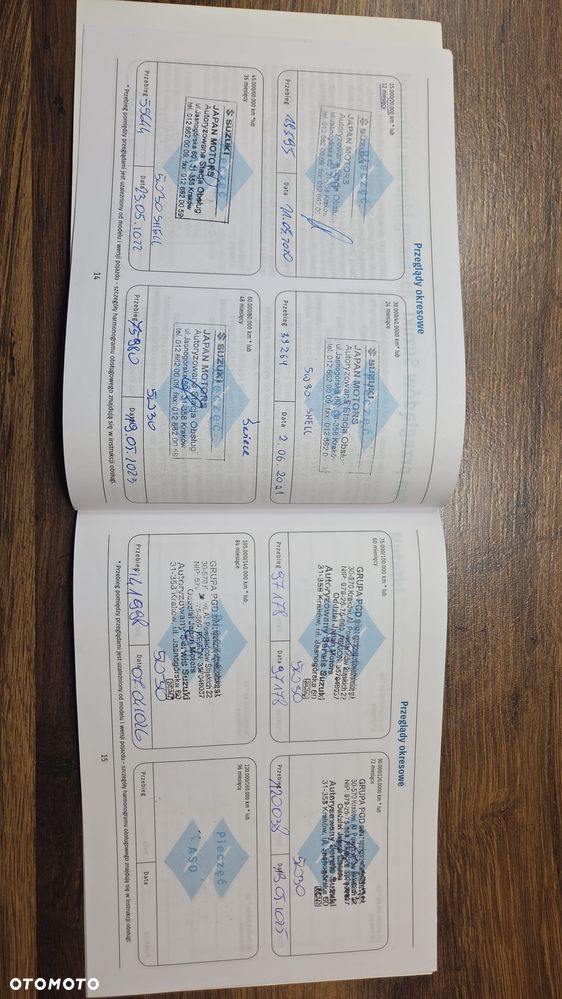 Przeglądy okresowe
15.000/20.000 km * lub
12 miesięcy
SUZUKI
JAPAN MOTORS
Autoryzowana Stacja Obsług
Przebieg 18595
Data 11.05.2020
30.000/40.000 km * lub
24 miesięcy
SUZUKI
JAPAN MOTORS
Autoryzowana Stacja Obsług
ul. Jasnogórska 60, 31-358 Kraków
5W30 SHELL
Przebieg 39264
Data 2.06.2021
45.000/60.000 km * lub
36 miesięcy
SUZUKI
JAPAN MOTORS
Autoryzowana Stacja Obsług
ul. Jasnogórska 60, 31-358 Kraków
tel. 012 662 00 09, fax: 012 662 00 59
5W30 SHELL
Przebieg 55644
Data 23.05.2022
60.000/80.000 km * lub
48 miesięcy
świece
SUZUKI
JAPAN MOTORS
Autoryzowana Stacja Obsług
ul. Jasnogórska 60, 31-358 Kraków
tel. 012 662 00 09, fax: 012 662 00 59
5W30
Przebieg 75980
Data 19.05.2023
* Przebieg pomiędzy przeglądami jest uzależniony od modelu i wersji pojazdu - szczegóły harmonogramu obsługowego znajdują się w instrukcji obsługi.
14
Przeglądy okresowe
75.000/100.000 km * lub
60 miesięcy
GRUPA PGD
Oddział Japan Motors
Autoryzowany Serwis Suzuki
31-358 Kraków, ul. Jasnogórska 60
5W30
Przebieg 97178
Data 97178
90.000/120.000 km * lub
72 miesięcy
GRUPA PGD
Autoryzowany Serwis Suzuki
31-358 Kraków, ul. Jasnogórska 60
5W30
Przebieg 120038
Data 13.05.2025
105.000/140.000 km * lub
84 miesiące
GRUPA PGD
Oddział Japan Motors
Autoryzowany Serwis Suzuki
31-358 Kraków, ul. Jasnogórska 60
5W30
Przebieg 141968
Data 07.01.2026
120.000/160.000 km * lub
96 miesięcy
Pieczęć
ASO
Przebieg
Data
* Przebieg pomiędzy przeglądami jest uzależniony od modelu i wersji pojazdu - szczegóły harmonogramu obsługowego znajdują się w instrukcji obsługi.
15
OTOMOTO